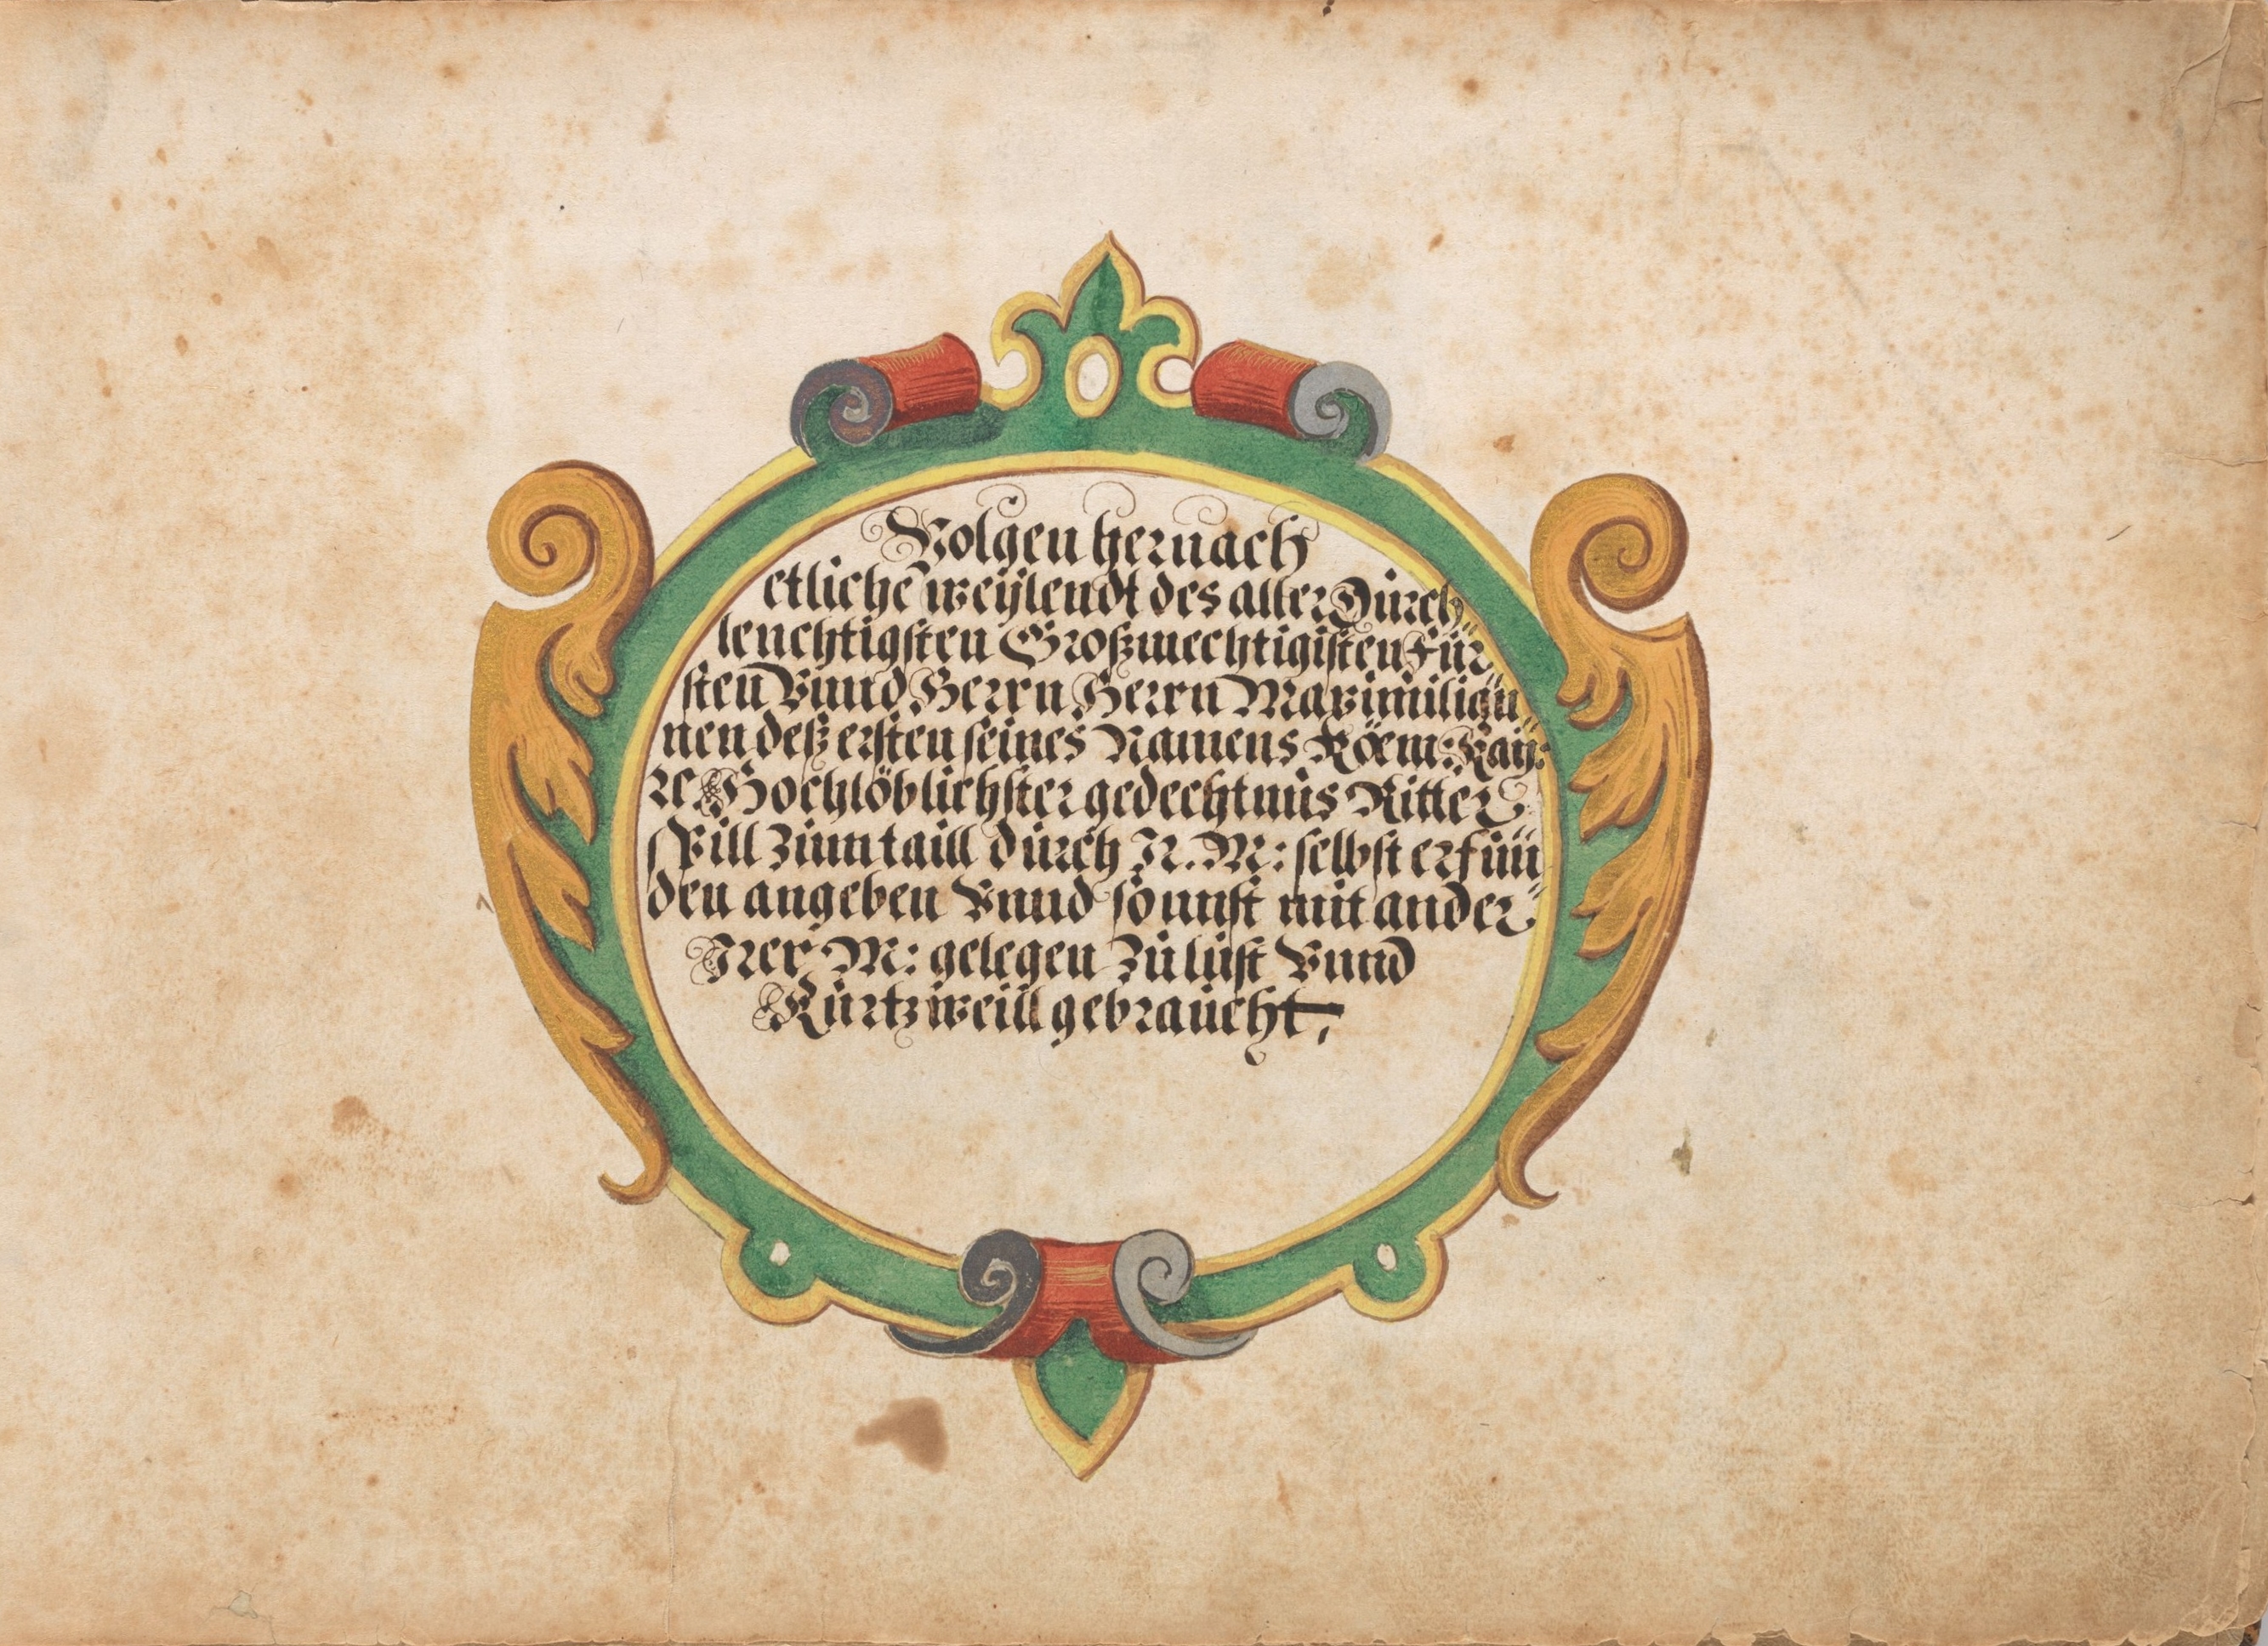 Volgen hernach
etliche weÿlendt des aller Durch„
leuchtigsten Großmechtigisten Für„
sten Vnnd Herrn Herrn Maximilian„
nen deß ersten seines Namens Röem: Kaÿ:
re Hochlöblichster gedechtnus Ritter„
spill Zum taill durch J. M: selbst erfun„
den angeben Vnnd sonnst mit ander„
Jrer M: gelegen Zu lust Vnnd
Kurtzweill gebraucht.